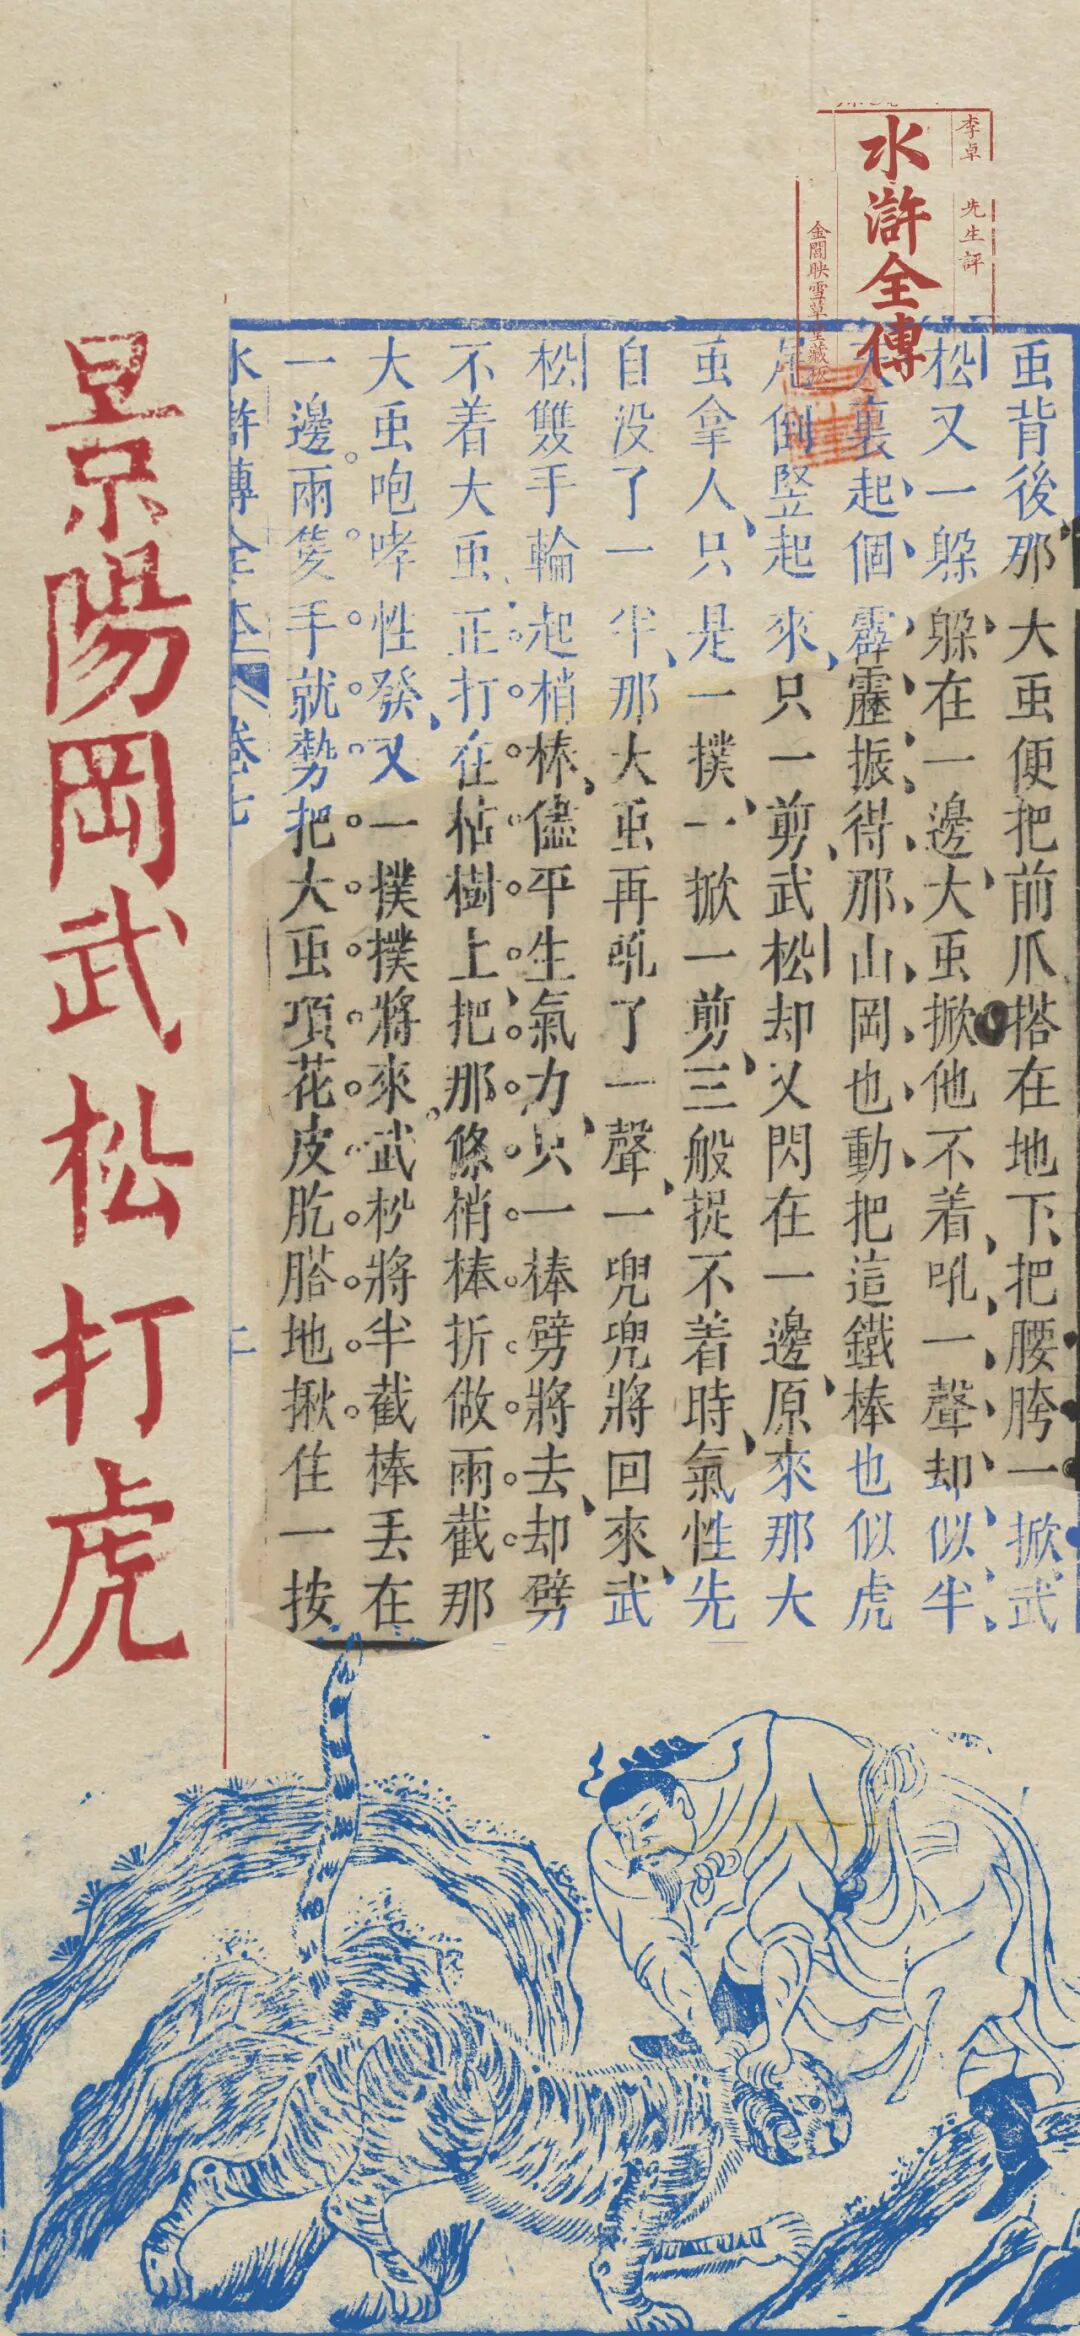 李卓 先生評
水滸全傳
金閶映雪草堂藏板
䖝背後那大䖝便把前爪搭在地下把腰胯一掀武
松又一躲躲在一邊大䖝掀他不着吼一聲却似半
天裏起個霹靂振得那山岡也動把這鐵棒也似虎
尾倒竪起來只一剪武松却又閃在一邊原來那大
䖝拿人只是一撲一掀一剪三般捉不着時氣性先
自没了一半那大䖝再吼了一聲一兜兜將回來武
松雙手輪起梢棒儘平生氣力只一棒劈將去却劈
不着大䖝正打在枯樹上把那條梢棒折做兩截那
大䖝咆哮性發又一撲撲將來武松將半截棒丟在
一邊兩隻手就勢把大䖝頂花皮肐㬹地揪住一按
水滸傳全 卷七
景陽岡武松打虎